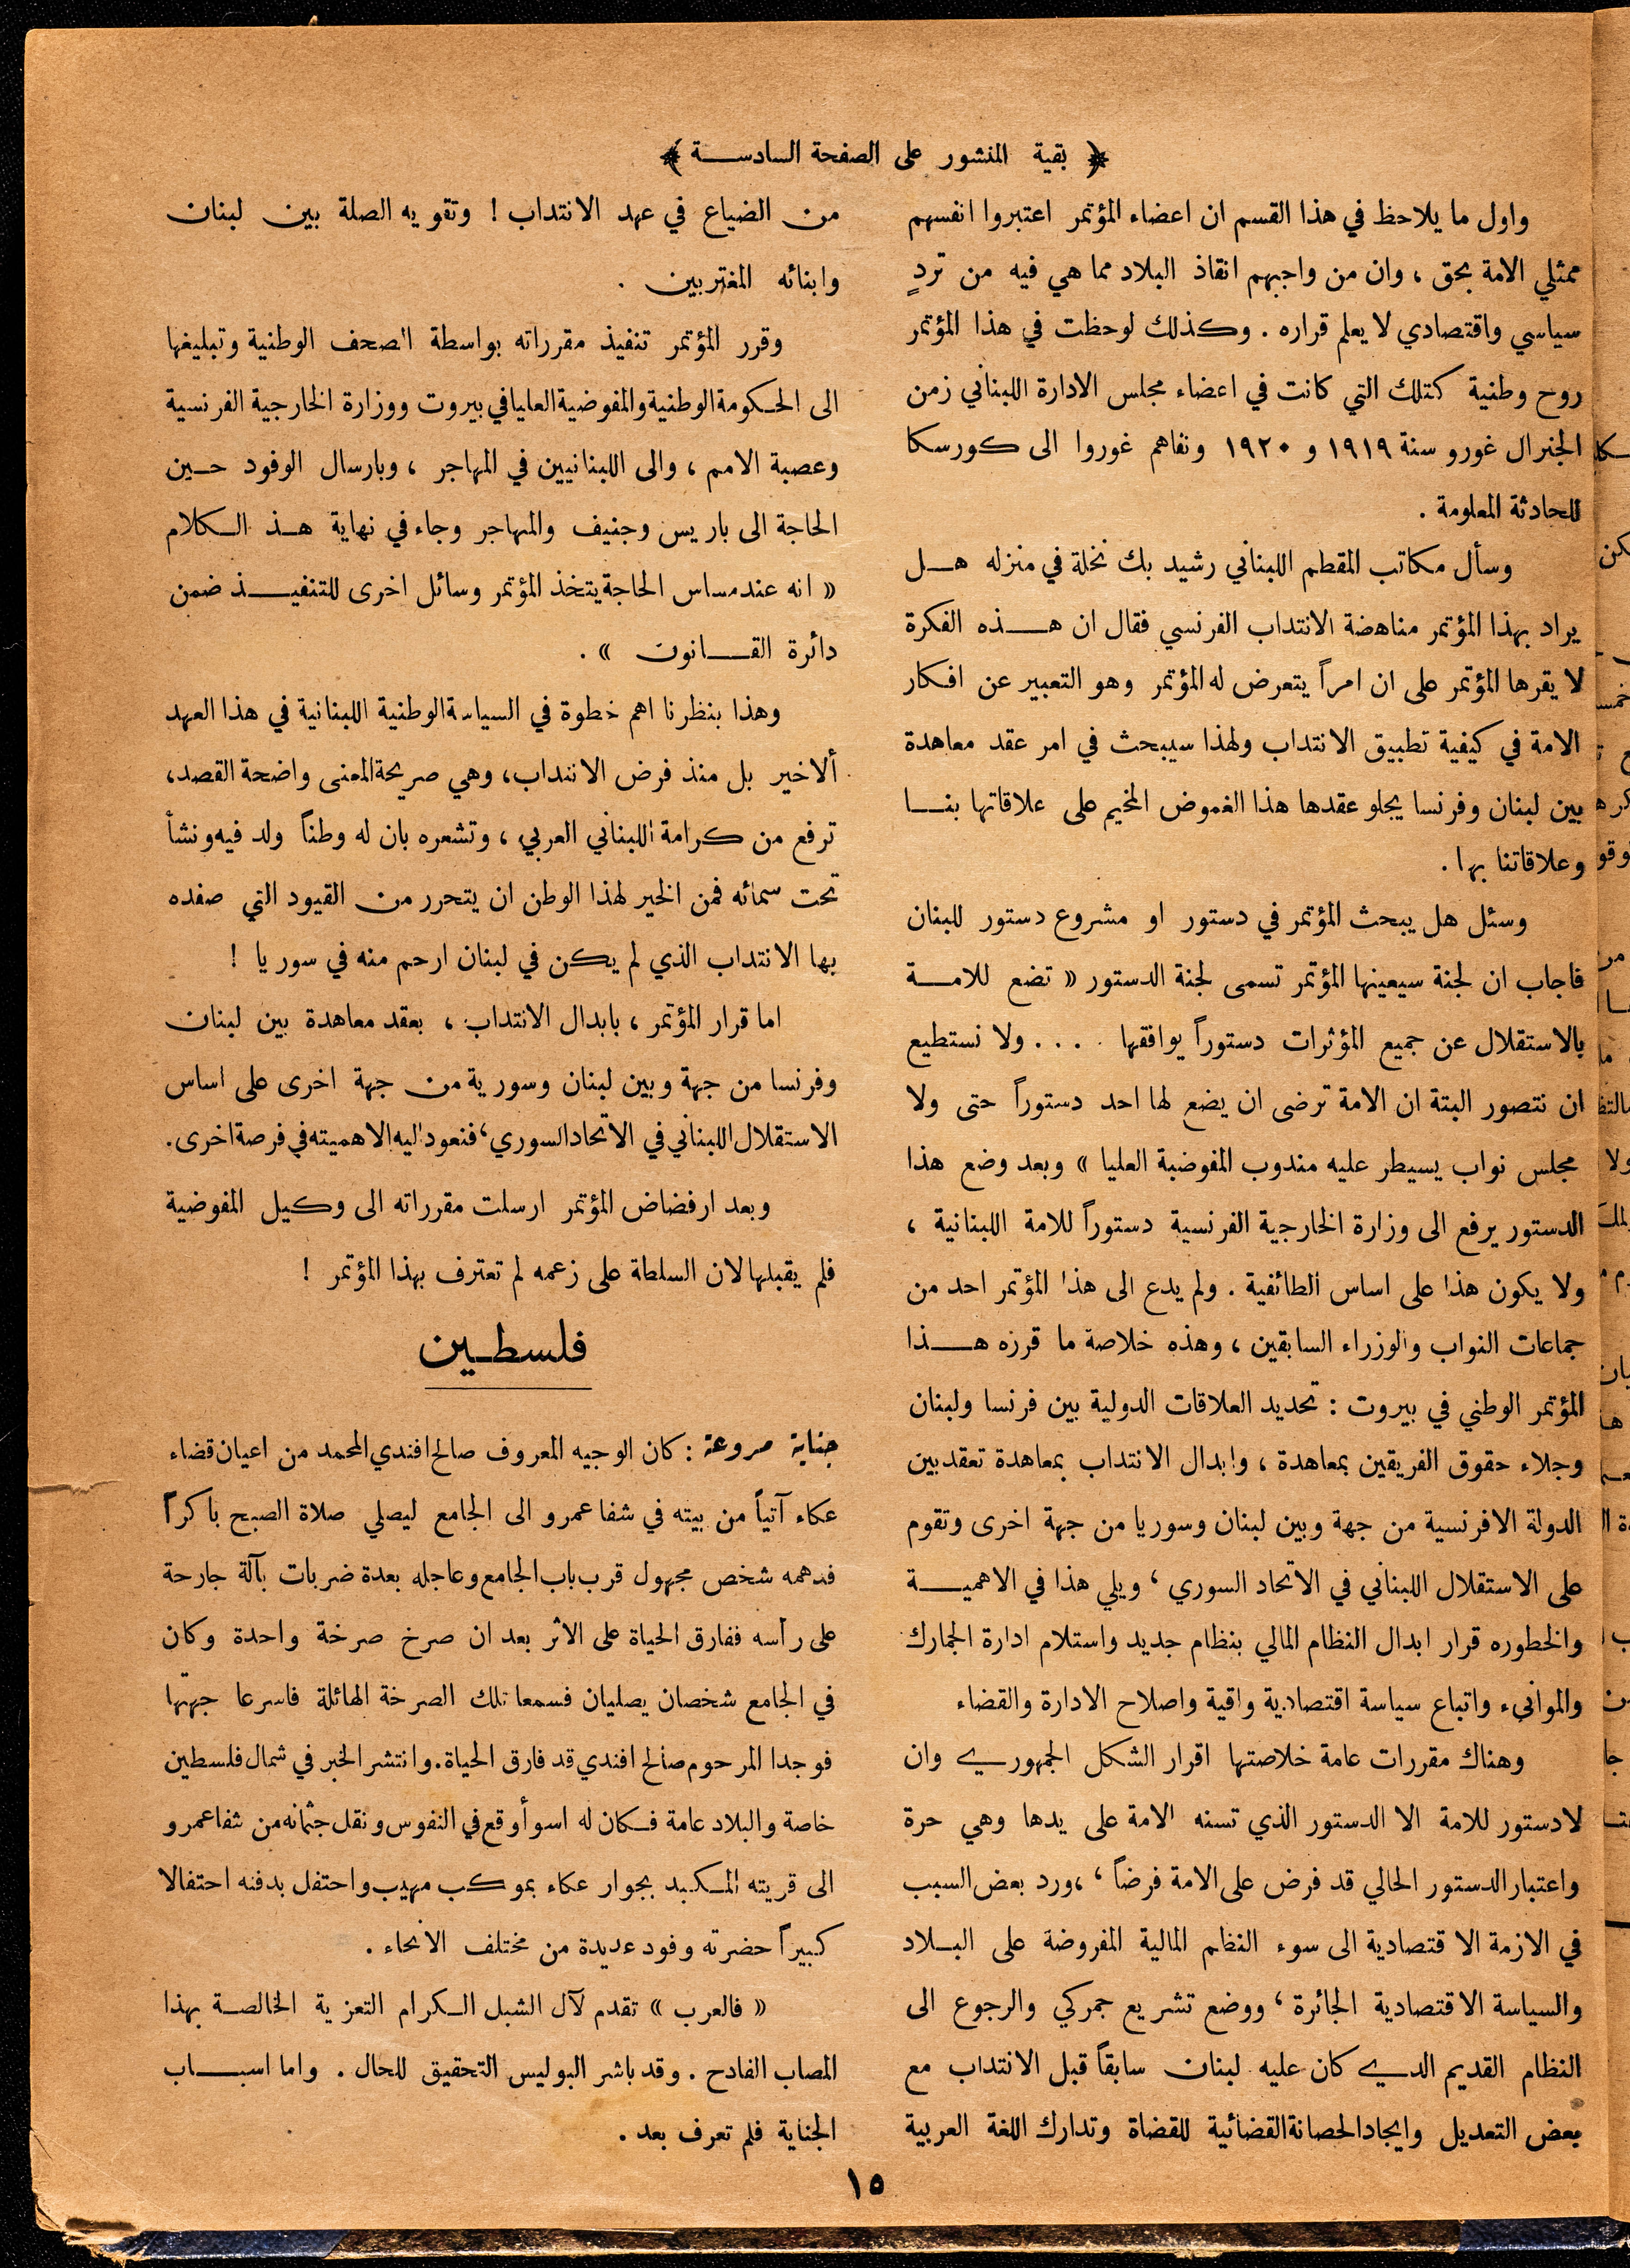 ﴿ بقية المنشور على الصفحة السادســـة ﴾
واول ما يلاحظ في هذا القسم ان اعضاء المؤتمر اعتبروا انفسهم
ممثلي الامة بحق ، وان من واجبهم انقاذ البلاد مما هي فيه من تردٍ
سياسي واقتصادي لا يعلم قراره . وكذلك لوحظت في هذا المؤتمر
روح وطنية كتلك التي كانت في اعضاء مجلس الادارة اللبناني زمن
الجنرال غورو سنة ١٩١٩ و ١٩٢٠ ونفاهم غوروا الى كورسكا
للحادثة المعلومة .
وسأل مكاتب المقطم اللبناني رشيد بك نخلة في منزله هـــل
يراد بهذا المؤتمر مناهضة الانتداب الفرنسي فقال ان هـــذه الفكرة
لا يقرها المؤتمر على ان امراً يتعرض له المؤتمر وهو التعبير عن افكار
الامة في كيفية تطبيق الانتداب ولهذا سيبحث في امر عقد معاهدة
بين لبنان وفرنسا يجلو عقدها هذا الغموض المخيم على علاقاتها بنـــا
وعلاقاتنا بها .
وسئل هل يبحث المؤتمر في دستور او مشروع دستور للبنان
فاجاب ان لجنة سيعينها المؤتمر تسمى لجنة الدستور « تضع للامـــة
بالاستقلال عن جميع المؤثرات دستوراً يوافقها .... ولا نستطيع
ان نتصور البتة ان الامة ترضى ان يضع لها احد دستوراً حتى ولا
مجلس نواب يسيطر عليه مندوب المفوضية العليا » وبعد وضع هذا
الدستور يرفع الى وزارة الخارجية الفرنسية دستوراً للامة اللبنانية ،
ولا يكون هذا على اساس الطائفية . ولم يدع الى هذا المؤتمر احد من
جماعات النواب والوزراء السابقين ، وهذه خلاصة ما قرره هـــذا
المؤتمر الوطني في بيروت : تحديد العلاقات الدولية بين فرنسا ولبنان
وجلاء حقوق الفريقين بمعاهدة ، وابدال الانتداب بمعاهدة تعقد بين
الدولة الافرنسية من جهة وبين لبنان وسوريا من جهة اخرى وتقوم
على الاستقلال اللبناني في الاتحاد السوري ، ويلي هذا في الاهميـــة
والخطوره قرار ابدال النظام المالي بنظام جديد واستلام ادارة الجمارك
والموانيء واتباع سياسة اقتصادية واقية واصلاح الادارة والقضاء
وهناك مقررات عامة خلاصتها اقرار الشكل الجمهوري وان
لا دستور للامة الا الدستور الذي تسنه الامة على يدها وهي حرة
واعتبار الدستور الحالي قد فرض على الامة فرضاً ، ،ورد بعض السبب
في الازمة الاقتصادية الى سوء النظم المالية المفروضة على البـلاد
والسياسة الاقتصادية الجائرة ، ووضع تشريع جمركي والرجوع الى
النظام القديم الدي كان عليه لبنان سابقاً قبل الانتداب مع
بعض التعديل وايجاد الحصانة القضائية للقضاة وتدارك اللغة العربية
من الضياع في عهد الانتداب ! وتقويه الصلة بين لبنان
وابنائه المغتربين .
وقرر المؤتمر تنفيذ مقرراته بواسطة الصحف الوطنية وتبليغها
الى الحكومة الوطنية والمفوضية العليا في بيروت ووزارة الخارجية الفرنسية
وعصبة الامم ، والى اللبنانيين في المهاجر ، وبارسال الوفود حــين
الحاجة الى باريس وجنيف والمهاجر وجاء في نهاية هــذ الــكلام
« انه عند مساس الحاجة يتخذ المؤتمر وسائل اخرى للتنفيـــذ ضمن
دائرة القـــانون » .
وهذا بنظرنا اهم خطوة في السياسة الوطنية اللبنانية في هذا العهد
ألاخير بل منذ فرض الانتداب، وهي صريحة المعنى واضحة القصد،
ترفع من كرامة اللبناني العربي ، وتشعره بان له وطناً ولد فيه ونشأ
تحت سمائه فمن الخير لهذا الوطن ان يتحرر من القيود التي صفده
بها الانتداب الذي لم يكن في لبنان ارحم منه في سوريا !
اما قرار المؤتمر ، بابدال الانتداب ، بعقد معاهدة بين لبنان
وفرنسا من جهة وبين لبنان وسورية من جهة اخرى على اساس
الاستقلال اللبناني في الاتحاد السوري، فنعود اليه الاهميته في فرصة اخرى .
وبعد ارفضاض المؤتمر ارسلت مقرراته الى وكيل المفوضية
فلم يقبلها لان السلطة على زعمه لم تعترف بهذا المؤتمر !
فلسطــين
جناية مروعة : كان الوجيه المعروف صالح افندي المحمد من اعيان قضاء
عكاء آتياً من بيته في شفا عمرو الى الجامع ليصلي صلاة الصبح باكراً
فدهمه شخص مجهول قرب باب الجامع وعاجله بعدة ضربات بآلة جارحة
على رأسه ففارق الحياة على الاثر بعد ان صرخ صرخة واحدة وكان
في الجامع شخصان يصليان فسمعا تلك الصرخة الهائلة فاسرعا جهتها
فوجدا المرحوم صالح افندي قد فارق الحياة . وانتشر الخبر في شمال فلسطين
خاصة والبلاد عامة فـكان له اسوأ وقع في النفوس ونقل جثمانه من شفا عمرو
الى قريته المـكـبد بجوار عكاء بموكب مهيب واحتفل بدفنه احتفالا
كبيراً حضرته وفود عديدة من مختلف الانحاء .
« فالعرب » تقدم لآل الشبل الـكرام التعزية الخالصة بهذا
المصاب الفادح . وقد باشر البوليس التحقيق للحال . واما اسبـــاب
الجناية فلم تعرف بعد .
١٥